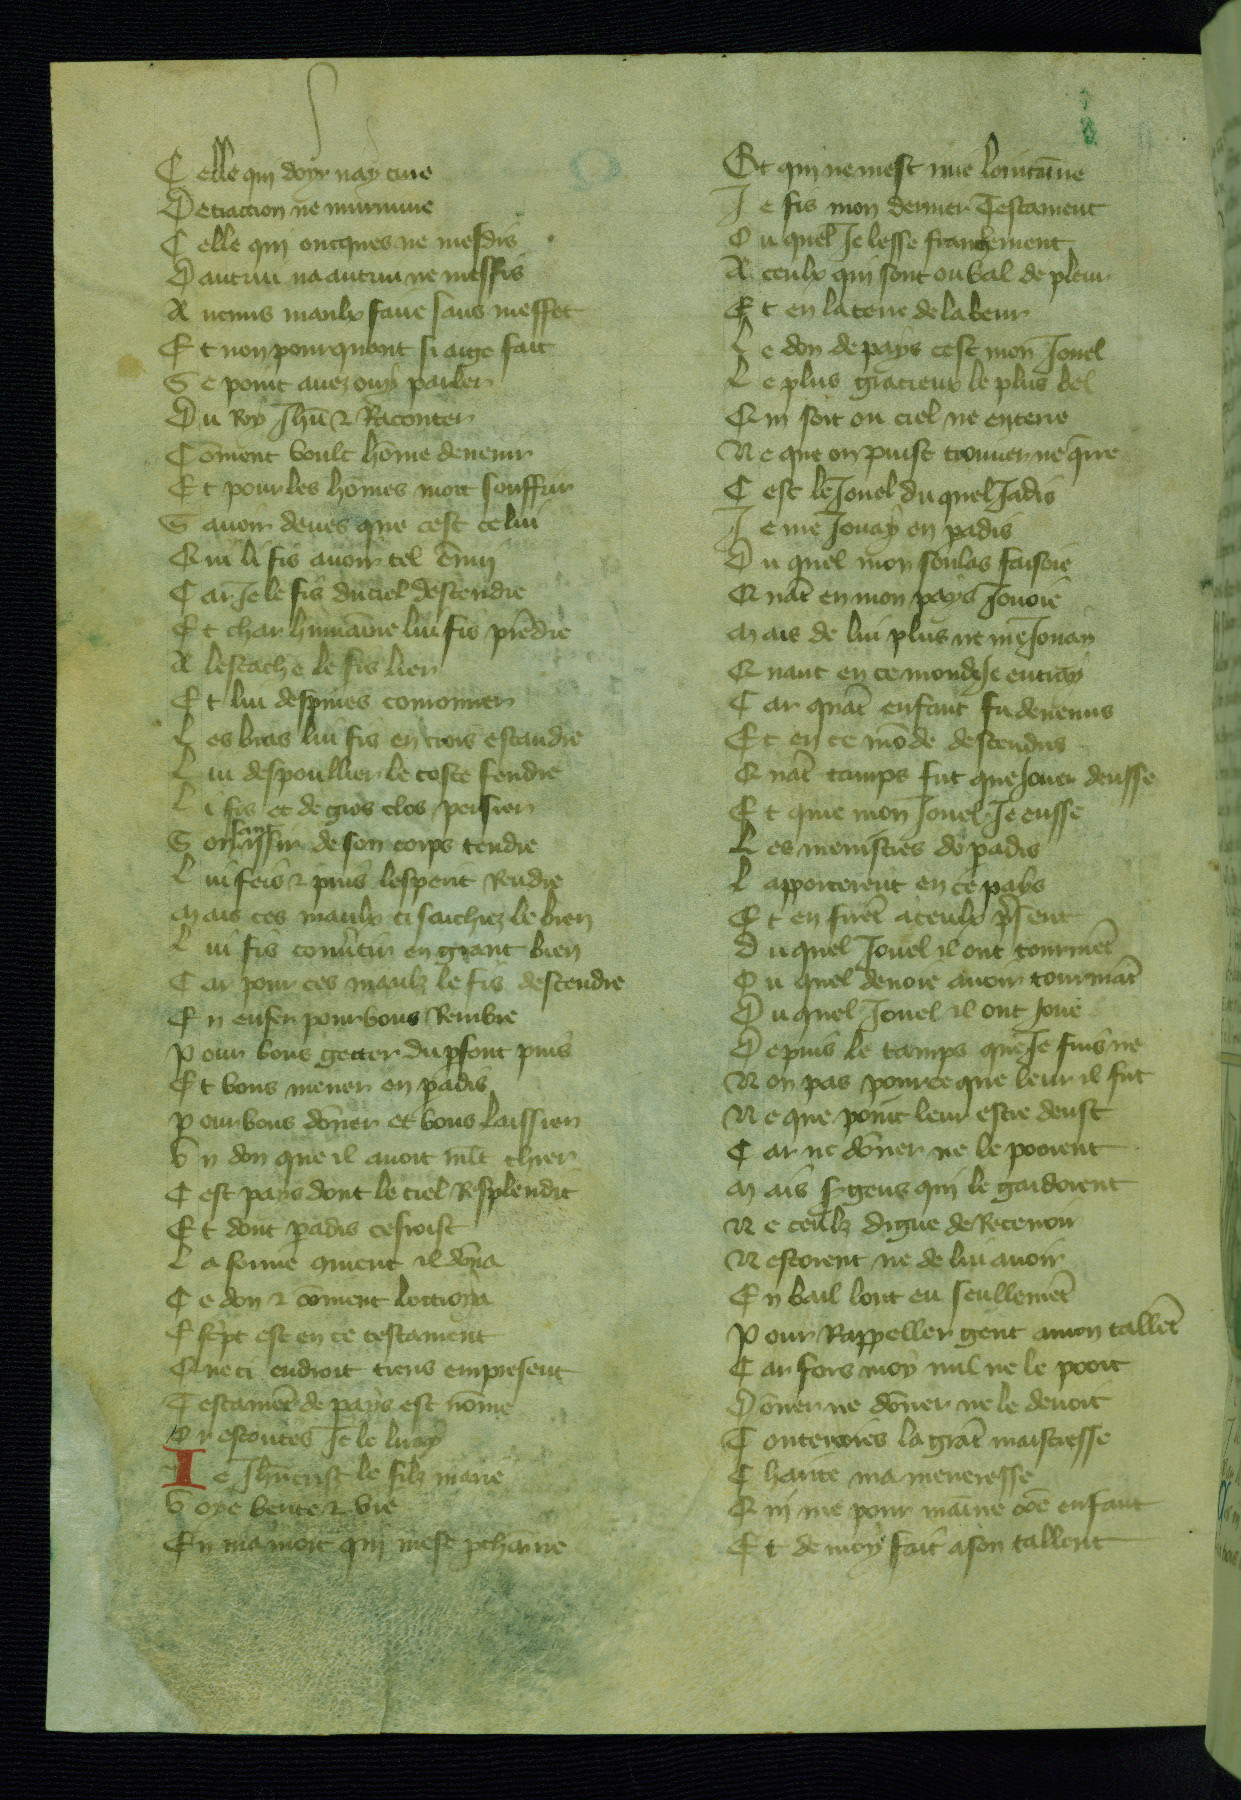 Celle qui doyr nay cure
Detraction ne murmure
Celle qui oncques ne mesdis
Dautrui na autrui ne meffis
A nenus maulx faire sans meffet
Et non pourquant si aige fait
Se point avez ouy parler
Du Roy Jhū ⁊ Raconter
Cōment voult hōme devenir
Et pour les hōmes mort souffrir
Savoir deves que cest celui
Qui li fis avoir tel ēnuy
Car Je le fis du ciel descendre
Et char humāine lui fis prēdre
A lestache le fis lier
Et lui despines couronner
Les bras lui fis en crois estandre
Lui despoullier le coste fendre
Li fis et de gros clos persier
Son sanc issir de son corps tendre
Lui feis ⁊ puis lesperit Rendre
Mais ces maulx ci saichiez le bien
Lui fis convertir en grant bien
Car pour ces maulz le fis descendre
En enfer pour vous Reimbre
Pour vous getter du pfont puis
Et vous mener en padis
Pour vous dōner et vous laissier
Un don que il avoit mlt chier
Cest pays dont le ciel Resplendit
Et dont padis cesioist
La forme cōment il dōna
Ce don ⁊ cōment lottroia
Escpt est en ce testament
Que ci endroit tiens empresent
Testamēt de pays est nōme
Or escoutes Je le liray
Je Jhūcrist le filz marie
Voye verite ⁊ vie
En ma mort qui mest pchāine
Et qui ne mest mie lointāine
Je fis mon dernier Testament
Ou quel Je lesse franchement
A ceulx qui sont ou val de pleur
Et en la terre de labeur
Le don de pays cest mon Jouel
Le plus gracieux le plus bel
Qui soit ou ciel ne en terre
Ne que on puist trouver ne q̄rre
Cest le Jouel du quel Jadis
Je me Jouay en padis
Du quel mon soulas faisoie
Quāt en mon pays Jouoie
Mais de lui plus ne me Jouay
Quant en ce monde Je entray
Car quāt enfant fu devenus
Et en ce mōde descendus
Quāt tamps fut que Jouer deusse
Et que mon Jouel Je eusse
Les menistres de padis
Lapporterent en ce pays
Et en firēt a ceulx psent
Du quel Jouel il ont tourmēt
Du quel devoie avoir tourmāt
Du quel Jouel il ont Joue
Depuis le tamps que Je fuis ne
Non pas pource que leur il fut
Ne que point leur estre deust
Car ne dōner ne le pooient
Mais sergens qui le gardoient
Ne ceulz digne de Recevoir
Nestoient ne de lui avoir
En bail lont eu seullemēt
Pour Rappeller gent amon tallēt
Car fors moy nul ne le pooit
Dōner ne dōner ne le devoit
Toutevoies la grāt maistresse
Charite ma meneresse
Qui me pour māine cōe enfant
Et de moy fait a son tallent